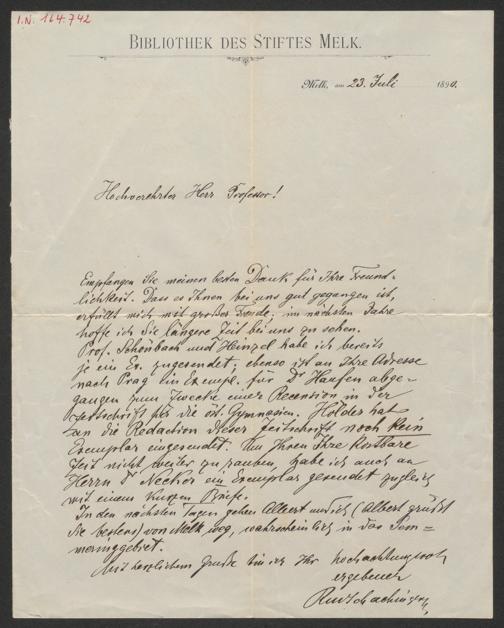 I.N. 164.742
BIBLIOTHEK DES STIFTES MELK.
Melk, am 23. Juli 1890.
Hochverehrter Herr Professor!
Empfangen Sie meinen besten Dank für Ihre Freund-
lichkeit. Dass es Ihnen bei uns gut gegangen ist,
erfüllt mich mit großer Freude; im nächsten Jahre
hoffe ich Sie längere Zeit bei uns zu sehen.
Prof. Schönbach und Heinzel habe ich bereits
je ein Ex. zugesendet; ebenso ist an Ihre Adresse
nach Prag ein Exempl. für Dr Hauffen abge-
gangen zum Zwecke einer Recension in der
Zeitschrift für die öst. Gymnasien. Hölder hat
an die Redaction dieser Zeitschrift noch kein
Exemplar eingesendet. Um Ihnen Ihre kostbare
Zeit nicht weiter zu rauben, habe ich auch an
Herrn Dr Necker ein Exemplar gesendet zugleich
mit einem kurzen Briefe.
In den nächsten Tagen gehen Albert und ich (Albert grüßt
Sie bestens) von Melk weg, wahrscheinlich in das Sem=
meringgebiet.
Mit herzlichem Gruße bin ich Ihr hochachtungsvoll
ergebener